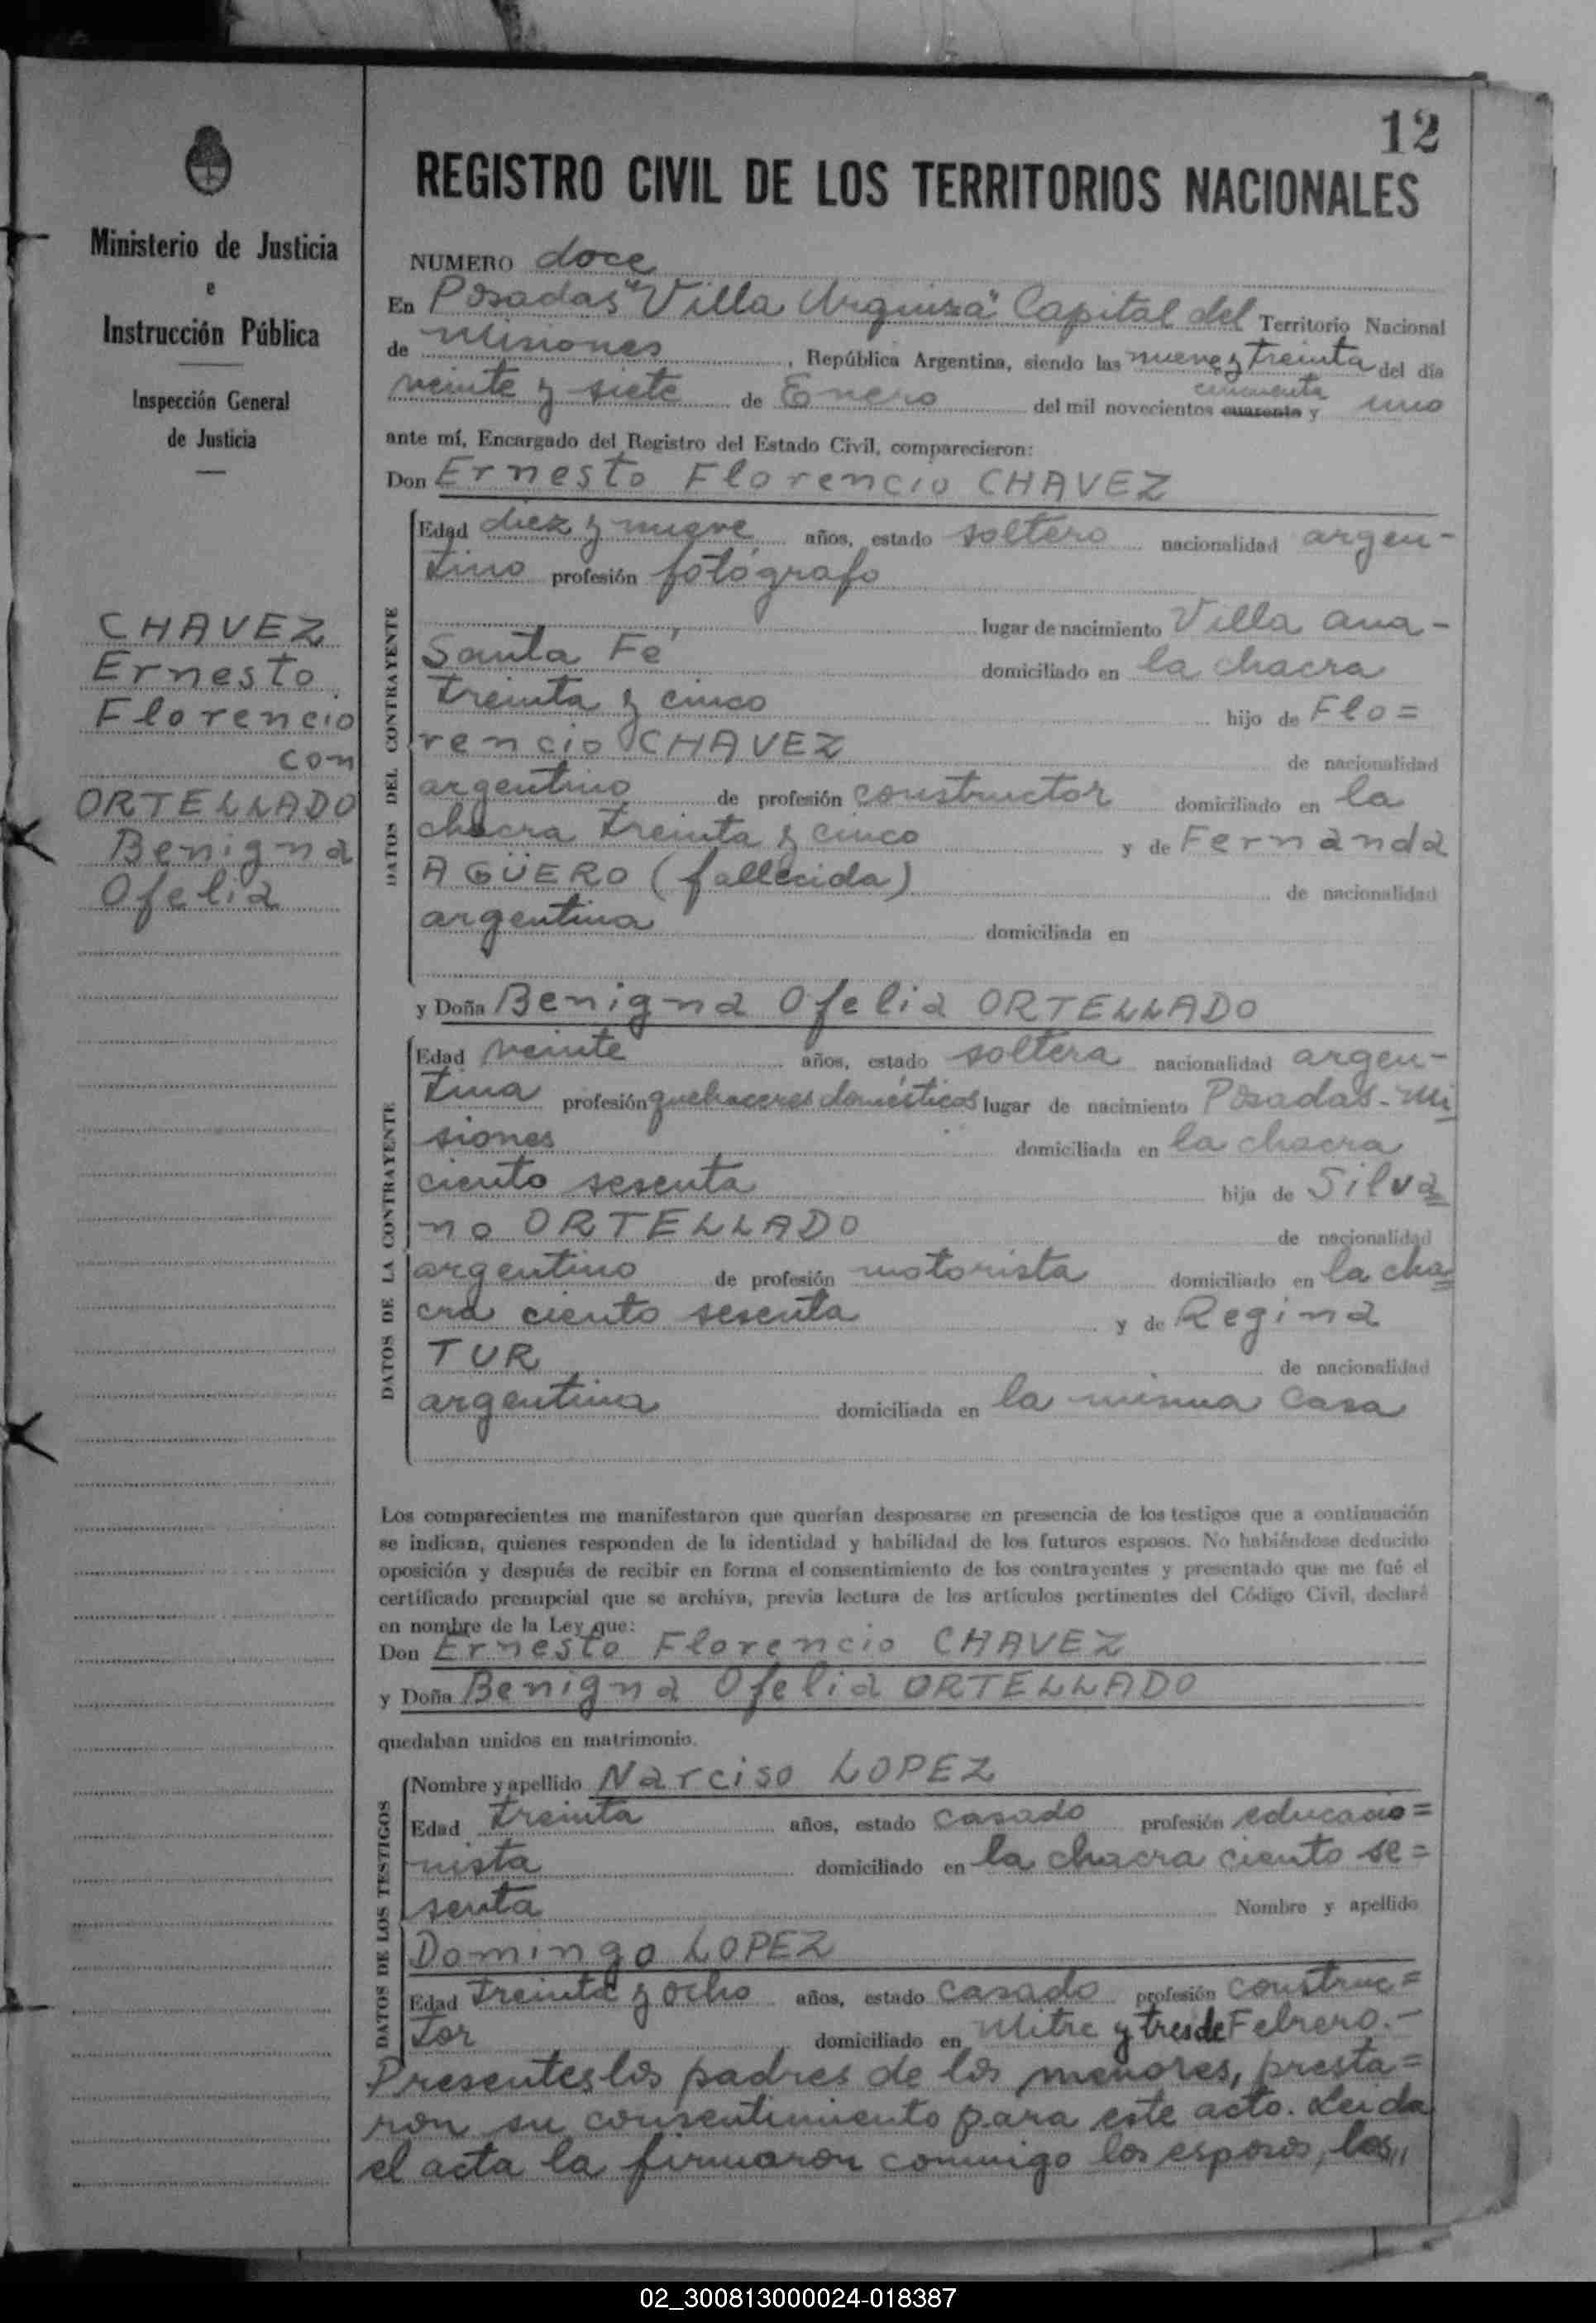 12
REGISTRO CIVIL DE LOS TERRITORIOS NACIONALES
Ministerio de Justicia
e
Instrucción Pública
Inspección General
de Justicia
CHAVEZ
Ernesto
Florencio
con
ORTELLADO
Benigna
Ofelia
NUMERO doce
En Posadas "Villa Urquiza" Capital del Territorio Nacional
de Misiones, República Argentina, siendo las nueve y treinta del día
veinte y siete de Enero del mil novecientos cuarenta cincuenta y uno
ante mí, Encargado del Registro del Estado Civil, comparecieron:
Don Ernesto Florencio CHAVEZ
DATOS DEL CONTRAYENTE
Edad diez y nueve años, estado soltero nacionalidad argen-
tino profesión fotógrafo
lugar de nacimiento Villa Ana-
Santa Fé domiciliado en la chacra
treinta y cinco hijo de Flo=
rencio CHAVEZ de nacionalidad
argentino de profesión constructor domiciliado en la
chacra treinta y cinco y de Fernanda
AGÜERO (fallecida) de nacionalidad
argentina domiciliada en
y Doña Benigna Ofelia ORTELLADO
DATOS DE LA CONTRAYENTE
Edad veinte años, estado soltera nacionalidad argen-
tina profesión quehaceres domésticos lugar de nacimiento Posadas-Mi
siones domiciliada en la chacra
ciento sesenta hija de Silva
no ORTELLADO de nacionalidad
argentino de profesión motorista domiciliado en la cha
cra ciento sesenta y de Regina
TUR de nacionalidad
argentina domiciliada en la misma casa
Los comparecientes me manifestaron que querían desposarse en presencia de los testigos que a continuación
se indican, quienes responden de la identidad y habilidad de los futuros esposos. No habiéndose deducido
oposición y después de recibir en forma el consentimiento de los contrayentes y presentado que me fué el
certificado prenupcial que se archiva, previa lectura de los artículos pertinentes del Código Civil, declaré
en nombre de la Ley que:
Don Ernesto Florencio CHAVEZ
y Doña Benigna Ofelia ORTELLADO
quedaban unidos en matrimonio.
DATOS DE LOS TESTIGOS
Nombre y apellido Narciso LOPEZ
Edad treinta años, estado casado profesión educacio=
nista domiciliado en la chacra ciento se=
senta Nombre y apellido
Domingo LOPEZ
Edad treinta y ocho años, estado casado profesión construc=
tor domiciliado en Mitre y tres de Febrero.-
Presentes los padres de los menores, presta=
ron su consentimiento para este acto. Leida
el acta la firmaron conmigo los esposos, los,,
02_300813000024-018387